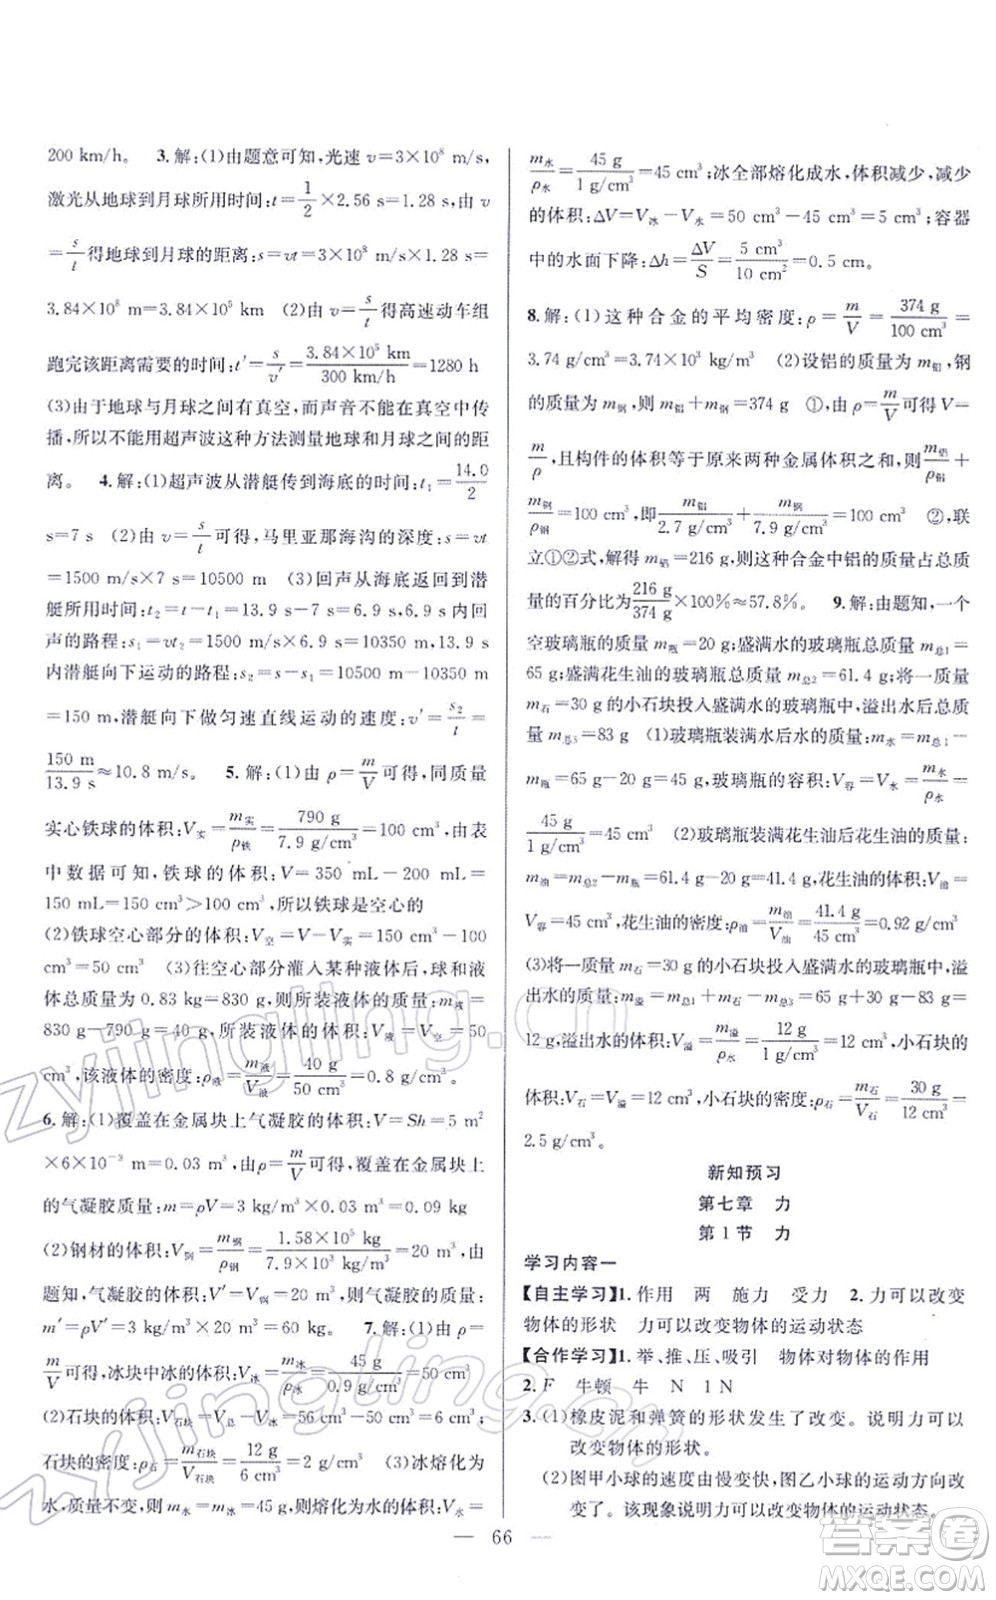 200 km/h。 3.解:(1)由题意可知,光速 v=3×10⁸ m/s,
激光从地球到月球所用时间:t=1/2×2.56 s=1.28 s,由 v
=s/t得地球到月球的距离:s=vt=3×10⁸ m/s×1.28 s=
3.84×10⁸ m=3.84×10⁵ km (2)由 v=s/t得高速动车组
跑完该距离需要的时间:t′=s/v′=3.84×10⁵ km/300 km/h=1280 h
(3)由于地球与月球之间有真空,而声音不能在真空中传
播,所以不能用超声波这种方法测量地球和月球之间的距
离。 4.解:(1)超声波从潜艇传到海底的时间:t₁=14.0/2
s=7 s (2)由 v=s/t可得,马里亚那海沟的深度:s=vt
=1500 m/s×7 s=10500 m (3)回声从海底返回到潜
艇所用时间:t₂=t-t₁=13.9 s-7 s=6.9 s,6.9 s内回
声的路程:s₁=vt₂=1500 m/s×6.9 s=10350 m,13.9 s
内潜艇向下运动的路程:s₂=s-s₁=10500 m-10350 m
=150 m,潜艇向下做匀速直线运动的速度:v′=s₂/t=
150 m/13.9 s≈10.8 m/s。 5.解:(1)由 ρ=m/V可得,同质量
实心铁球的体积:V实=m实/ρ铁=790 g/7.9 g/cm³=100 cm³,由表
中数据可知,铁球的体积:V=350 mL-200 mL=
150 mL=150 cm³>100 cm³,所以铁球是空心的
(2)铁球空心部分的体积:V空=V-V实=150 cm³-100
cm³=50 cm³ (3)往空心部分灌入某种液体后,球和液
体总质量为 0.83 kg=830 g,则所装液体的质量:m液=
830 g-790 g=40 g,所装液体的体积:V液=V空=50
cm³,该液体的密度:ρ液=m液/V液=40 g/50 cm³=0.8 g/cm³。
6.解:(1)覆盖在金属块上气凝胶的体积:V=Sh=5 m²
×6×10⁻³ m=0.03 m³,由 ρ=m/V可得,覆盖在金属块上
的气凝胶质量:m=ρV=3 kg/m³×0.03 m³=0.09 kg
(2)钢材的体积:V钢=m钢/ρ钢=1.58×10⁵ kg/7.9×10³ kg/m³=20 m³,由题
意可知,气凝胶的体积:V′=V钢=20 m³,气凝胶的质量:
m′=ρV′=3 kg/m³×20 m³=60 kg。 7.解:(1)由 ρ=
m/V可得,冰块中冰的体积:V冰=m冰/ρ冰=45 g/0.9 g/cm³=50 cm³
(2)石块的体积:V石块=V总-V冰=56 cm³-50 cm³=6 cm³,
石块的密度:ρ石=m石块/V石块=12 g/6 cm³=2 g/cm³ (3)冰熔化成
水,质量不变,则 m水=m冰=45 g,则熔化为水的体积:V水=
m水/ρ水=45 g/1 g/cm³=45 cm³;冰全部熔化成水,体积减少,减少
的体积:ΔV=V冰-V水=50 cm³-45 cm³=5 cm³;容器
中的水面下降:Δh=ΔV/S=5 cm³/10 cm²=0.5 cm。
8.解:(1)这种合金的平均密度:ρ=m/V=374 g/100 cm³=
3.74 g/cm³=3.74×10³ kg/m³ (2)设铝的质量为 m铝,钢
的质量为 m钢,则 m铝+m钢=374 g ①,由 ρ=m/V可得 V=
m/ρ,且构件的体积等于原来两种金属体积之和,则m铝/ρ铝+
m钢/ρ钢=100 cm³,即m铝/2.7 g/cm³+m钢/7.9 g/cm³=100 cm³ ②,联
立①②式,解得 m铝=216 g,则这种合金中铝的质量占总质
量的百分比为216 g/374 g×100%≈57.8%。 9.解:由题知,一个
空玻璃瓶的质量 m瓶=20 g;盛满水的玻璃瓶总质量 m总1=
65 g;盛满花生油的玻璃瓶总质量 m总2=61.4 g;将一质量
m石=30 g的小石块投入盛满水的玻璃瓶中,溢出水后总质量
m总3=83 g (1)玻璃瓶装满水后水的质量:m水=m总1-
m瓶=65 g-20 g=45 g,玻璃瓶的容积:V容=V水=m水/ρ水=
45 g/1 g/cm³=45 cm³ (2)玻璃瓶装满花生油后花生油的质量:
m油=m总2-m瓶=61.4 g-20 g=41.4 g,花生油的体积:V油=
V容=45 cm³,花生油的密度:ρ油=m油/V油=41.4 g/45 cm³=0.92 g/cm³
(3)将一质量 m石=30 g的小石块投入盛满水的玻璃瓶中,溢
出水的质量:m溢=m总1+m石-m总3=65 g+30 g-83 g=
12 g,溢出水的体积:V溢=m溢/ρ水=12 g/1 g/cm³=12 cm³,小石块的
体积:V石=V溢=12 cm³,小石块的密度:ρ石=m石/V石=30 g/12 cm³=
2.5 g/cm³。
新知预习
第七章 力
第1节 力
学习内容一
【自主学习】1.作用 两 施力 受力 2.力可以改变
物体的形状 力可以改变物体的运动状态
【合作学习】1.举、推、压、吸引 物体对物体的作用
2. F 牛顿 牛 N 1 N
3.(1)橡皮泥和弹簧的形状发生了改变。说明力可以
改变物体的形状。
(2)图甲小球的速度由慢变快,图乙小球的运动方向改
变了。该现象说明力可以改变物体的运动状态。
— 66 —
zyjingling.cn
zyjingling.cn
答案圈
MXQE.COM